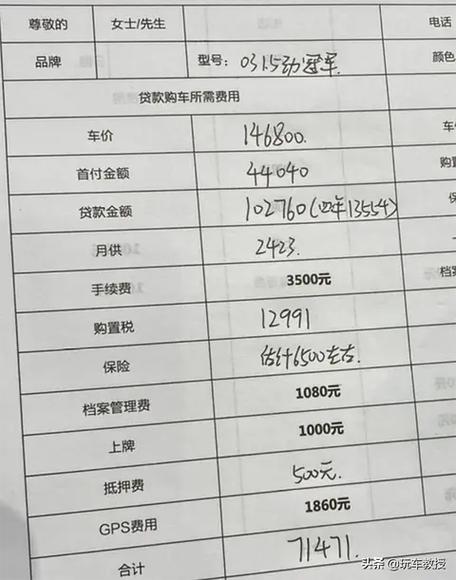 尊敬的 女士/先生 电话
品牌 型号: 03 1.5 劲 冠军. 颜色
贷款购车所需费用
车价 146800. 车
首付金额 44040 购置
贷款金额 102760(四年13554)
月供 2423.
手续费 3500元 档案
购置税 12991
保险 估计6500左右.
档案管理费 1080元
上牌 1000元
抵押费 500元.
GPS费用 1860元
合计 71471.
头条 @玩车教授